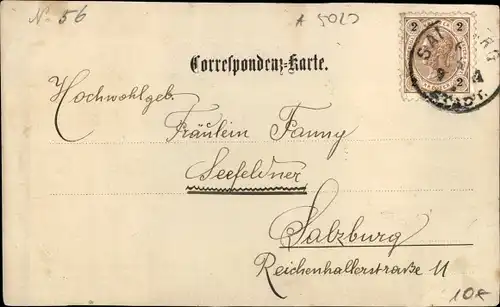 No. 56
A 5023
Correspondenz-Karte.
2 2
2 2
SAL RG
STADT.
Hochwohlgeb.
Fräulein Fanny
Seefeldner
Salzburg
Reichenhallerstraße 11
10.-